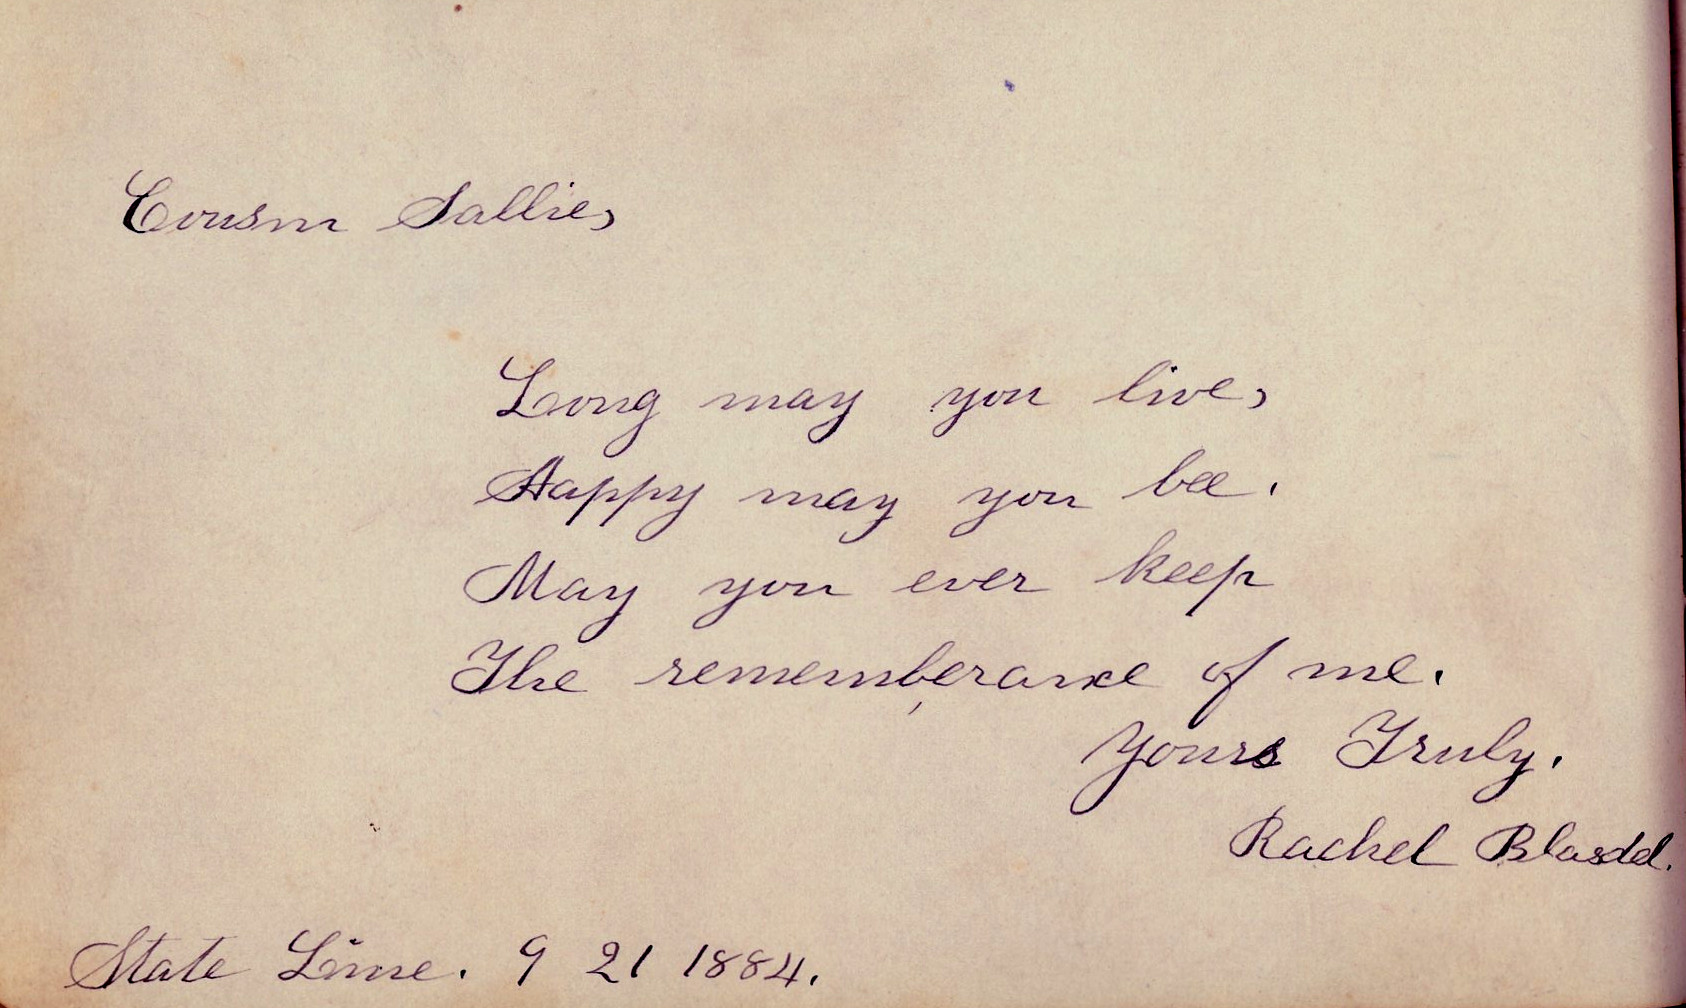 Cousin Sallie,
Long may you live,
Happy may you bee.
May you ever keep
The rememberance of me.
Yours Truly.
Rachel Blasdel.
State Line. 9 21 1884.